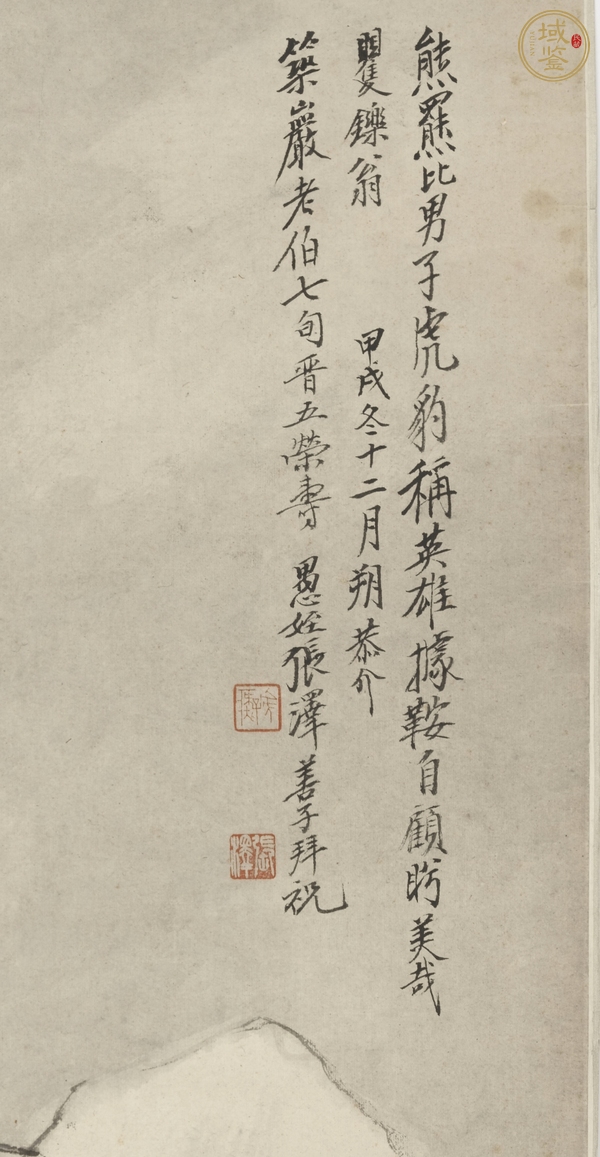 熊羆比男子虎豹稱英雄據鞍自顧眄美哉
矍鑠翁
甲戌冬十二月朔恭介
築巖老伯七旬晋五榮壽 愚姪張澤善子拜祝
張澤
域鑒